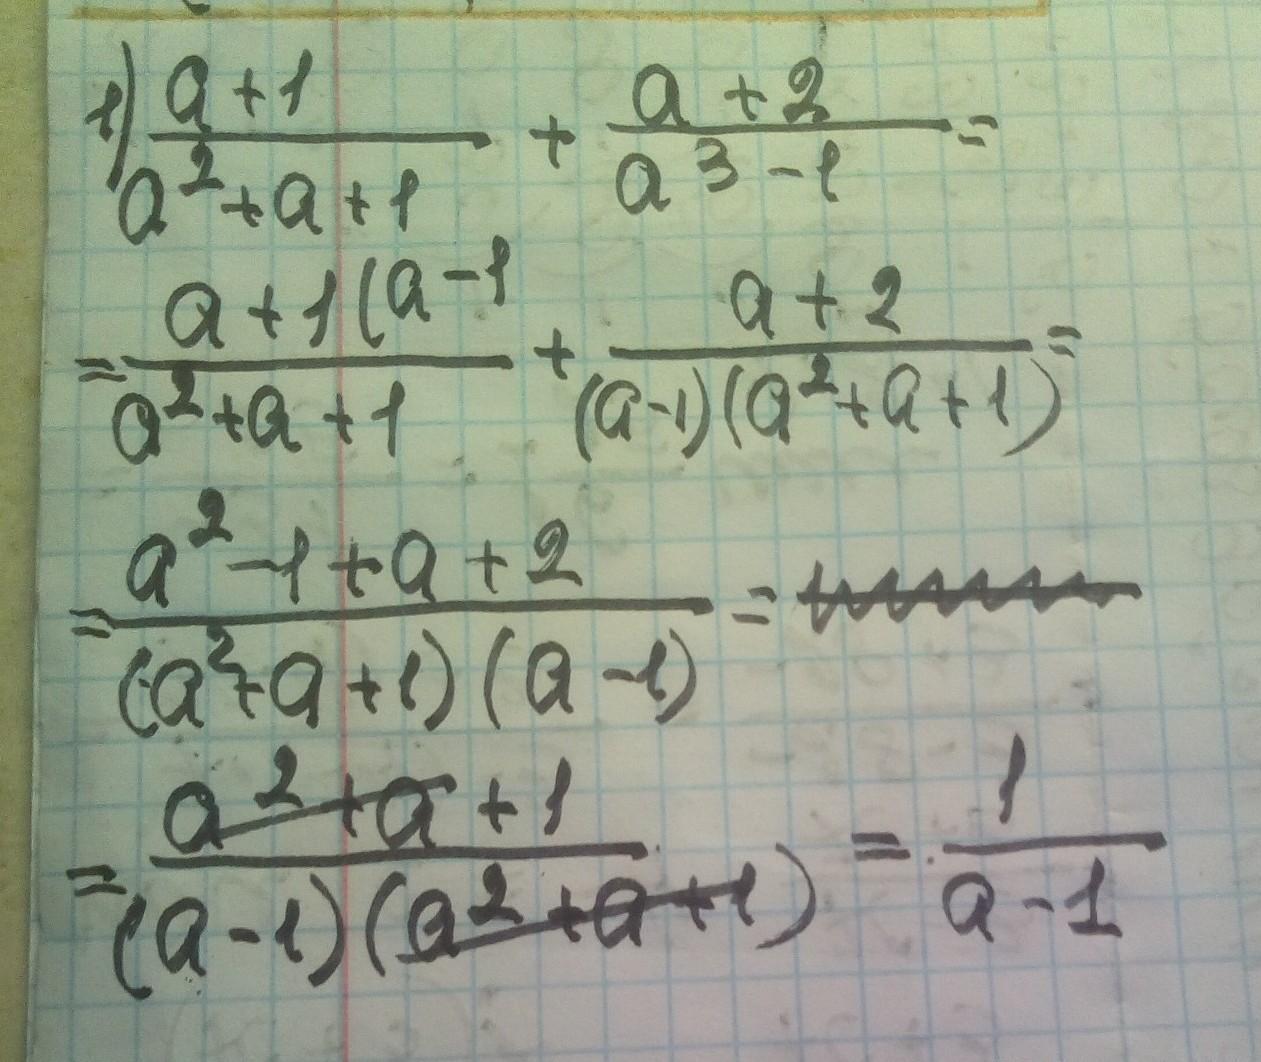 1) a + 1 / a² + a + 1 + a + 2 / a³ - 1 =
= a + 1 (a - 1 / a² + a + 1 + a + 2 / (a - 1)(a² + a + 1) =
= a² - 1 + a + 2 / (a² + a + 1)(a - 1) =
= a² + a + 1 / (a - 1)(a² + a + 1) = 1 / a - 1